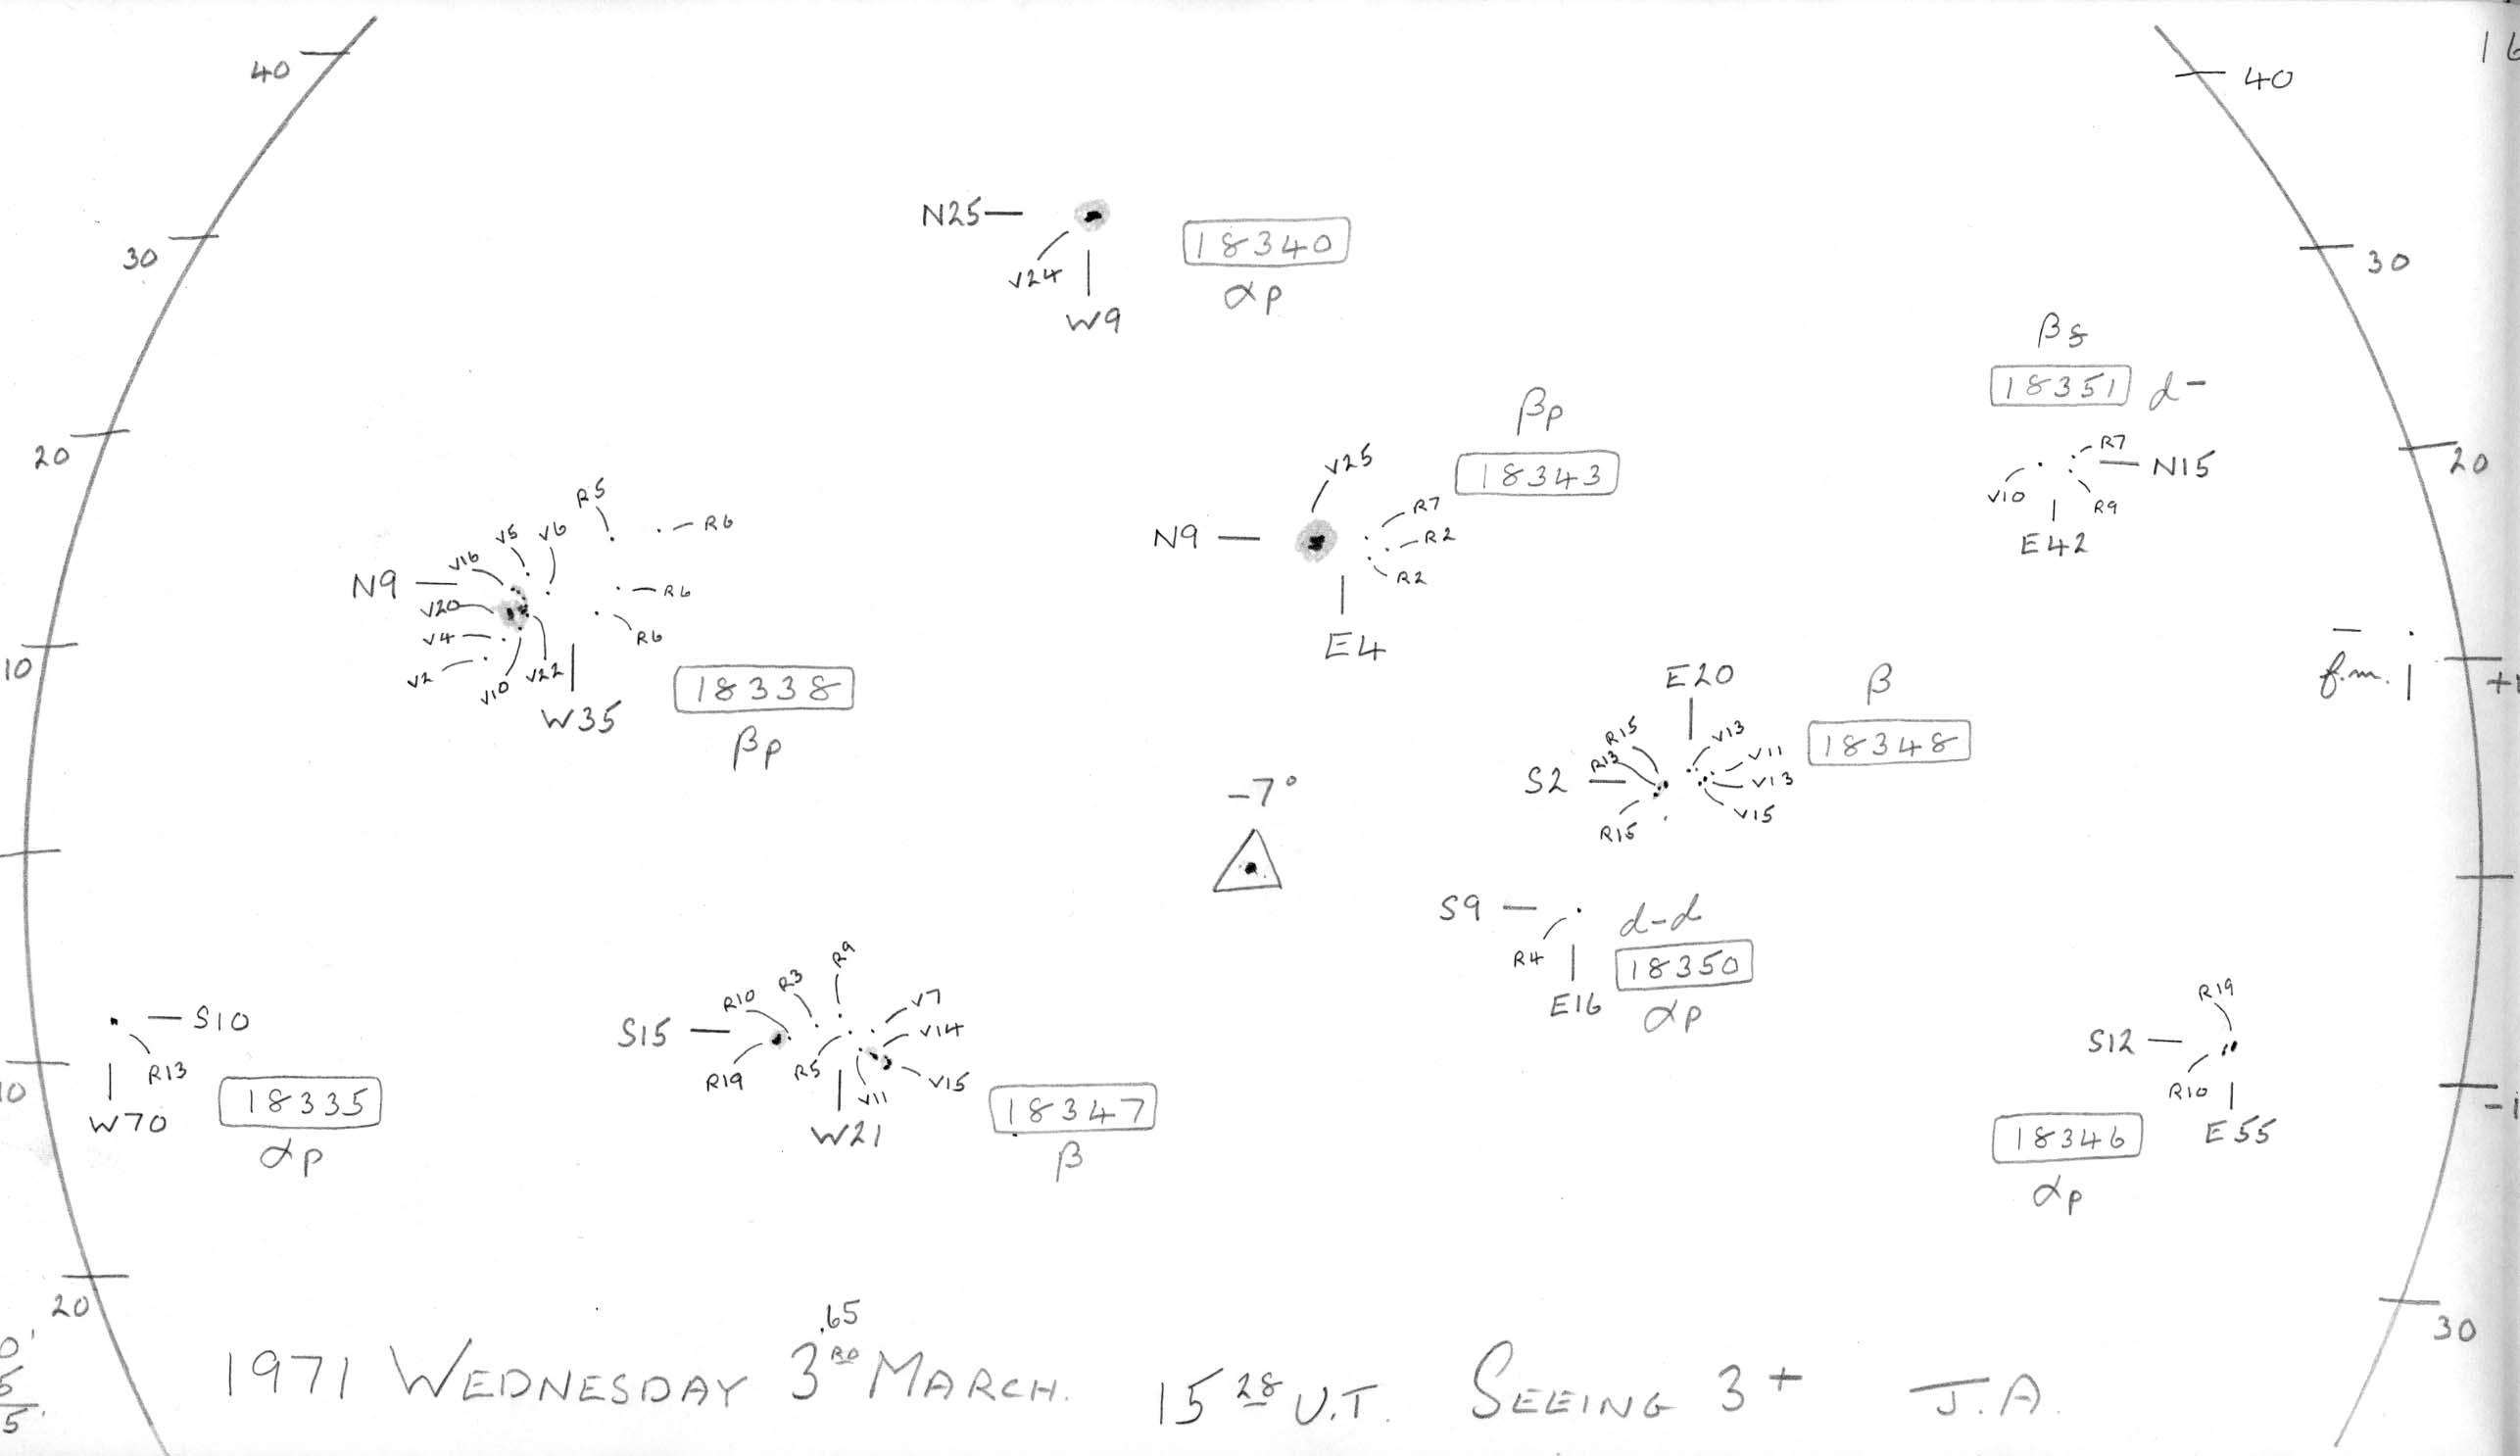 40
40
30
30
20
20
10
10
20
30
N25
V24
W9
18340
αp
βp
18343
V25
N9
R7
R2
R2
E4
βf
18351 d-
R7
N15
V10
R9
E42
f.m.
R5
R6
V5
V6
V16
N9
V20
V4
V2
V10
V22
R6
R6
W35
18338
βp
E20
β
18348
R15
R13
S2
R15
V13
V11
V13
V15
-7°
S9
d-d
R4
18350
E16
αp
S10
R13
W70
18335
αp
R9
R3
R10
S15
R19
R5
V7
V14
V15
V11
W21
18347
β
R19
S12
R10
E55
18346
αp
.65
1971 WEDNESDAY 3RD MARCH. 15 28 U.T. SEEING 3+ J.A.